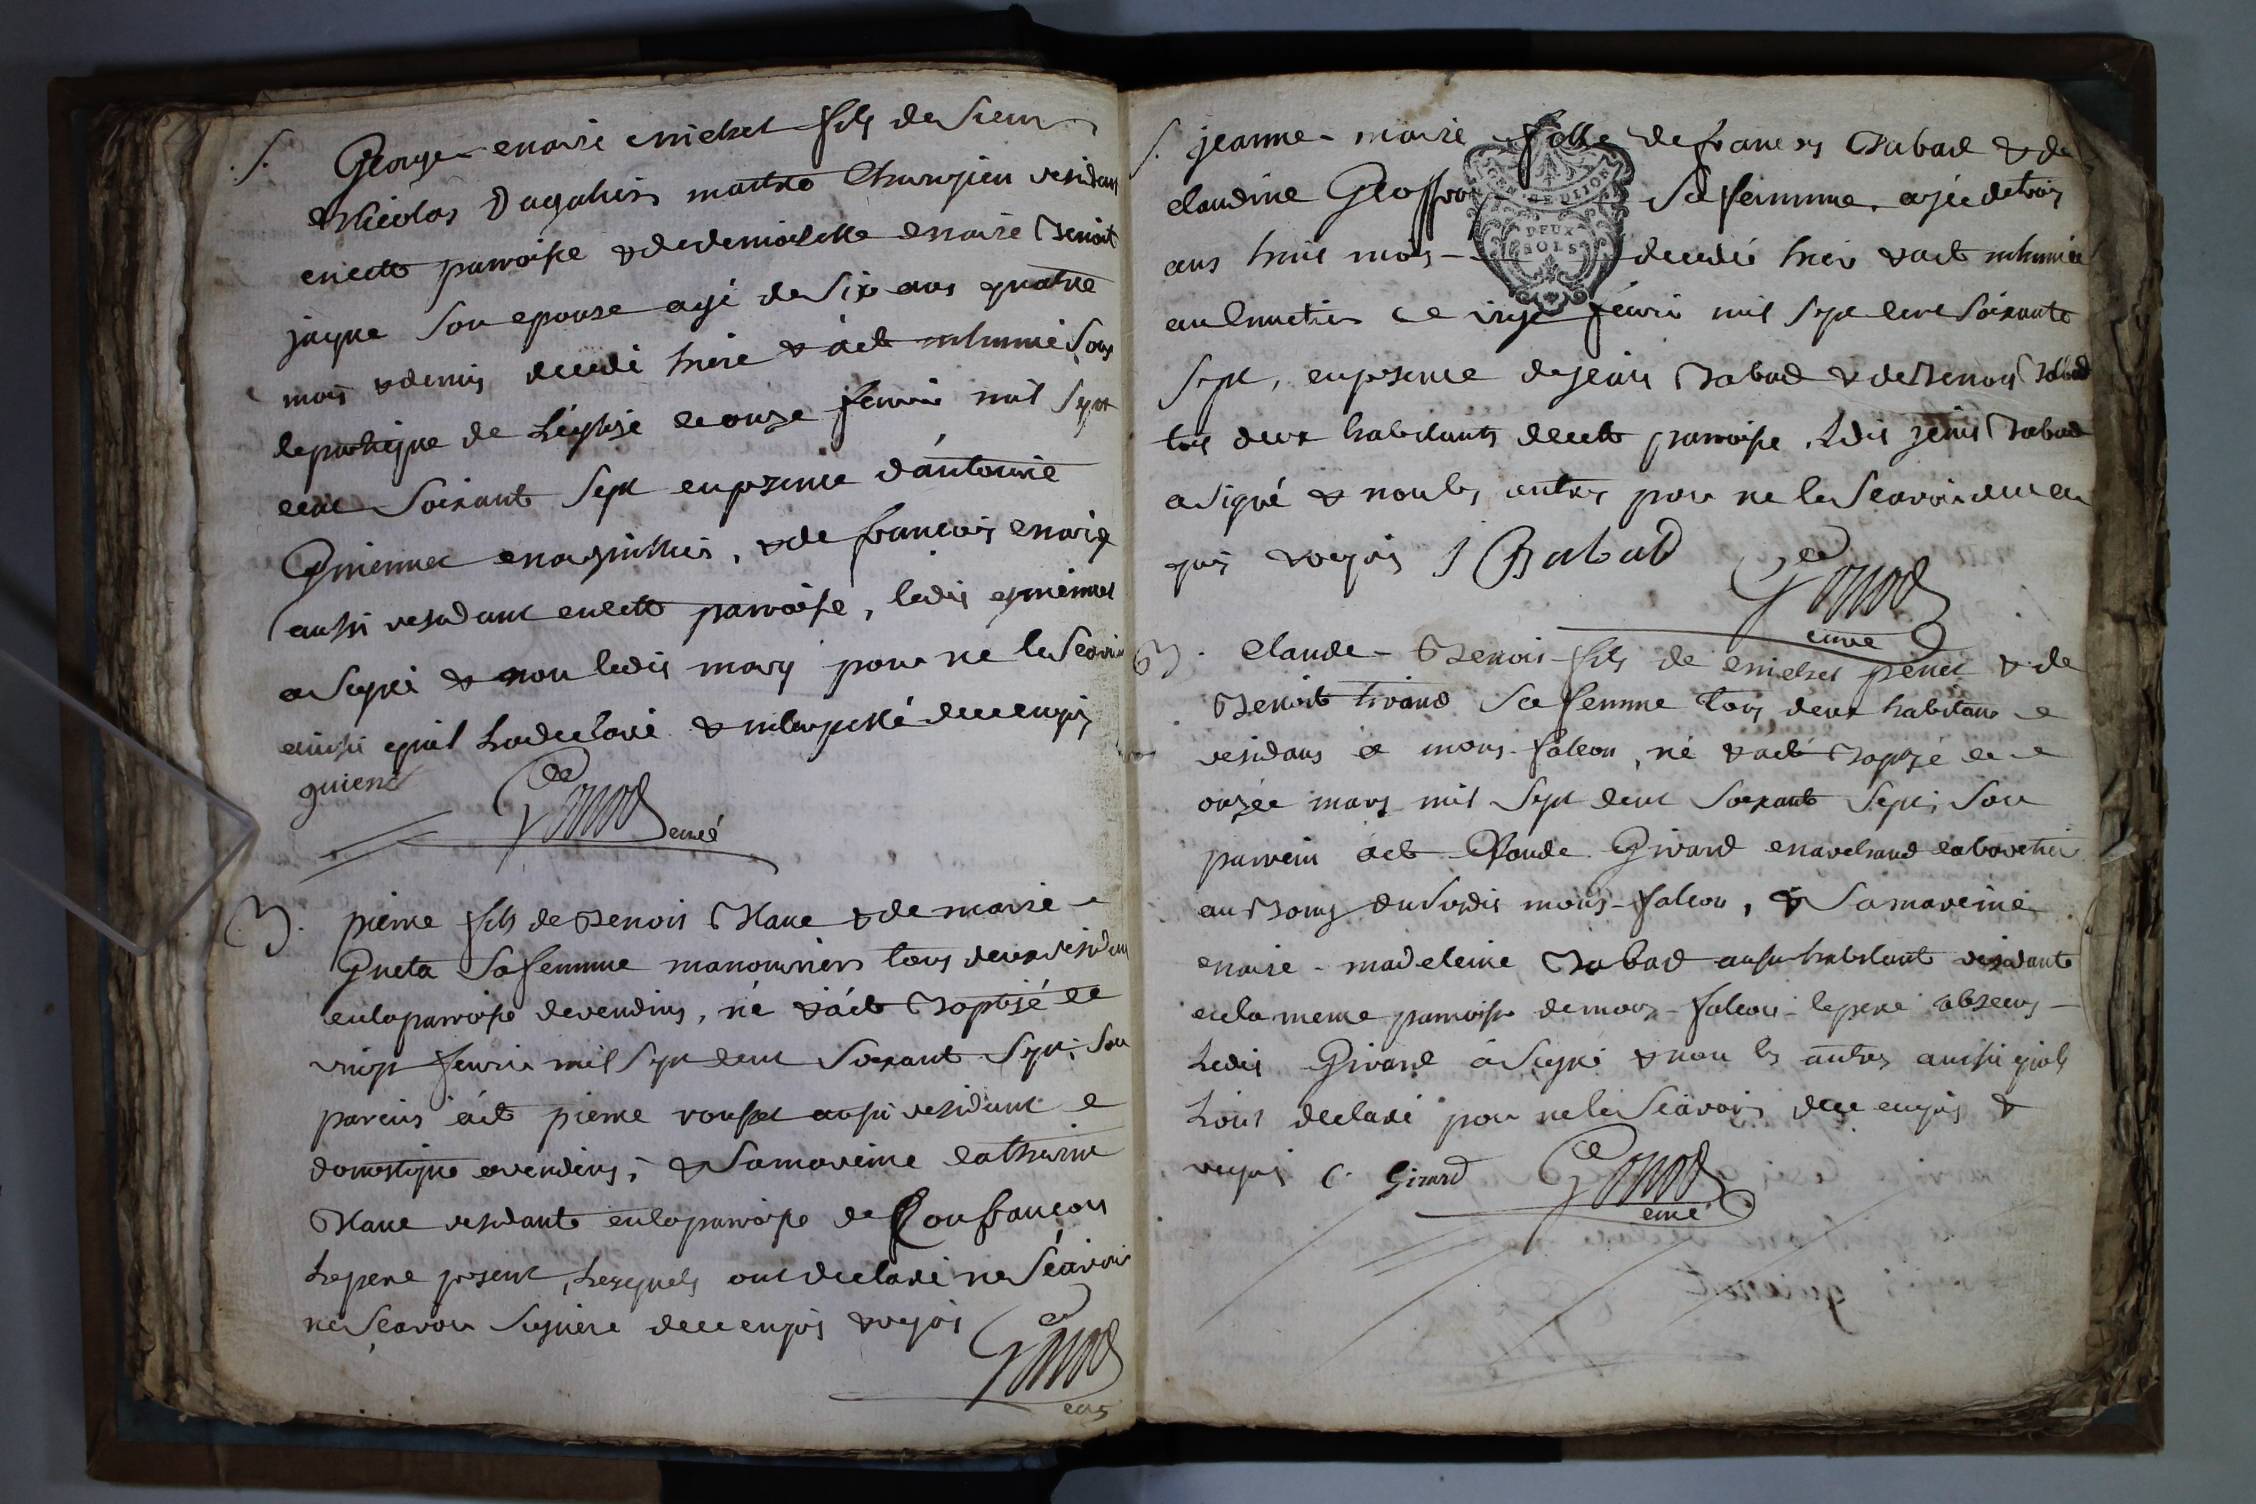 S. George marie michel fils de Sieur
Nicolas Dagalier maitre Chirurgien residant
en cette parroisse & de demoiselle marie Benoite
jaque son epouse agé de six ans quatre
mois & demis decedé hiere & àété inhumé sous
le portique de L'eglise le onze fevrier mil sept
cent soixant sept en presence d'antoine
Guiennet, & de francois mary
aussi residant en cette parroise, ledit guiennet
a signé & non ledit mary pour ne le scavoir
ainsi quil ha declaré & interpellé de ce enquis
guienet
Gonod curé
B. pierre fils de Benois & de marie
Gueta sa femme manouvriers tous deux residant
en la parroise de vendins, né & àété Baptisé le
vingt fevrier mil sept cent soixant sept; son
parein àété pierre rousset aussi residant e
domestique a vendins; & sa mareine catherine
residante en la parroise de Confrançon
Le pere present, Lesquels ont declaré ne Scavoir
ne Scavoir signiere de ce enquis & requis
Gonod curé
S. jeanne-marie fille de francois Babad & de
claudine Geoffray sa femme, agée de trois
ans huit mois decedée hier & àeté inhumée
au cimetier ce vingt fevrier mil sept cent soixante
sept, en presence de jean Babad & de Benois Babad
tos deux habitants de cette parroise, Ledit jean Babad
a signé & non les autres pour ne le scavoir de ce en
quis & requis J Babad
Gonod
curé
GEN DE LION
DEUX
SOLS
B. Claude-Benois fils de michel perret & de
Benoite tirand sa femme tous deux habitans e
residans a mons-falcon, né & àeté Baptisé le
onze mars mil sept cent soixante sept; son
parrein àeté Claude Girard marchand cabaretier
au Bourg du susdit mons-falcon, & sa mareine
marie-madeleine Babad aussi habitante residante
en la meme parroise de mons-falcon le pere absens
Ledit Girard à signé & non les autres ainsi quils
hont declaré pour ne le sçavoir de ce enquis &
requis C. Girard Gonod
curé